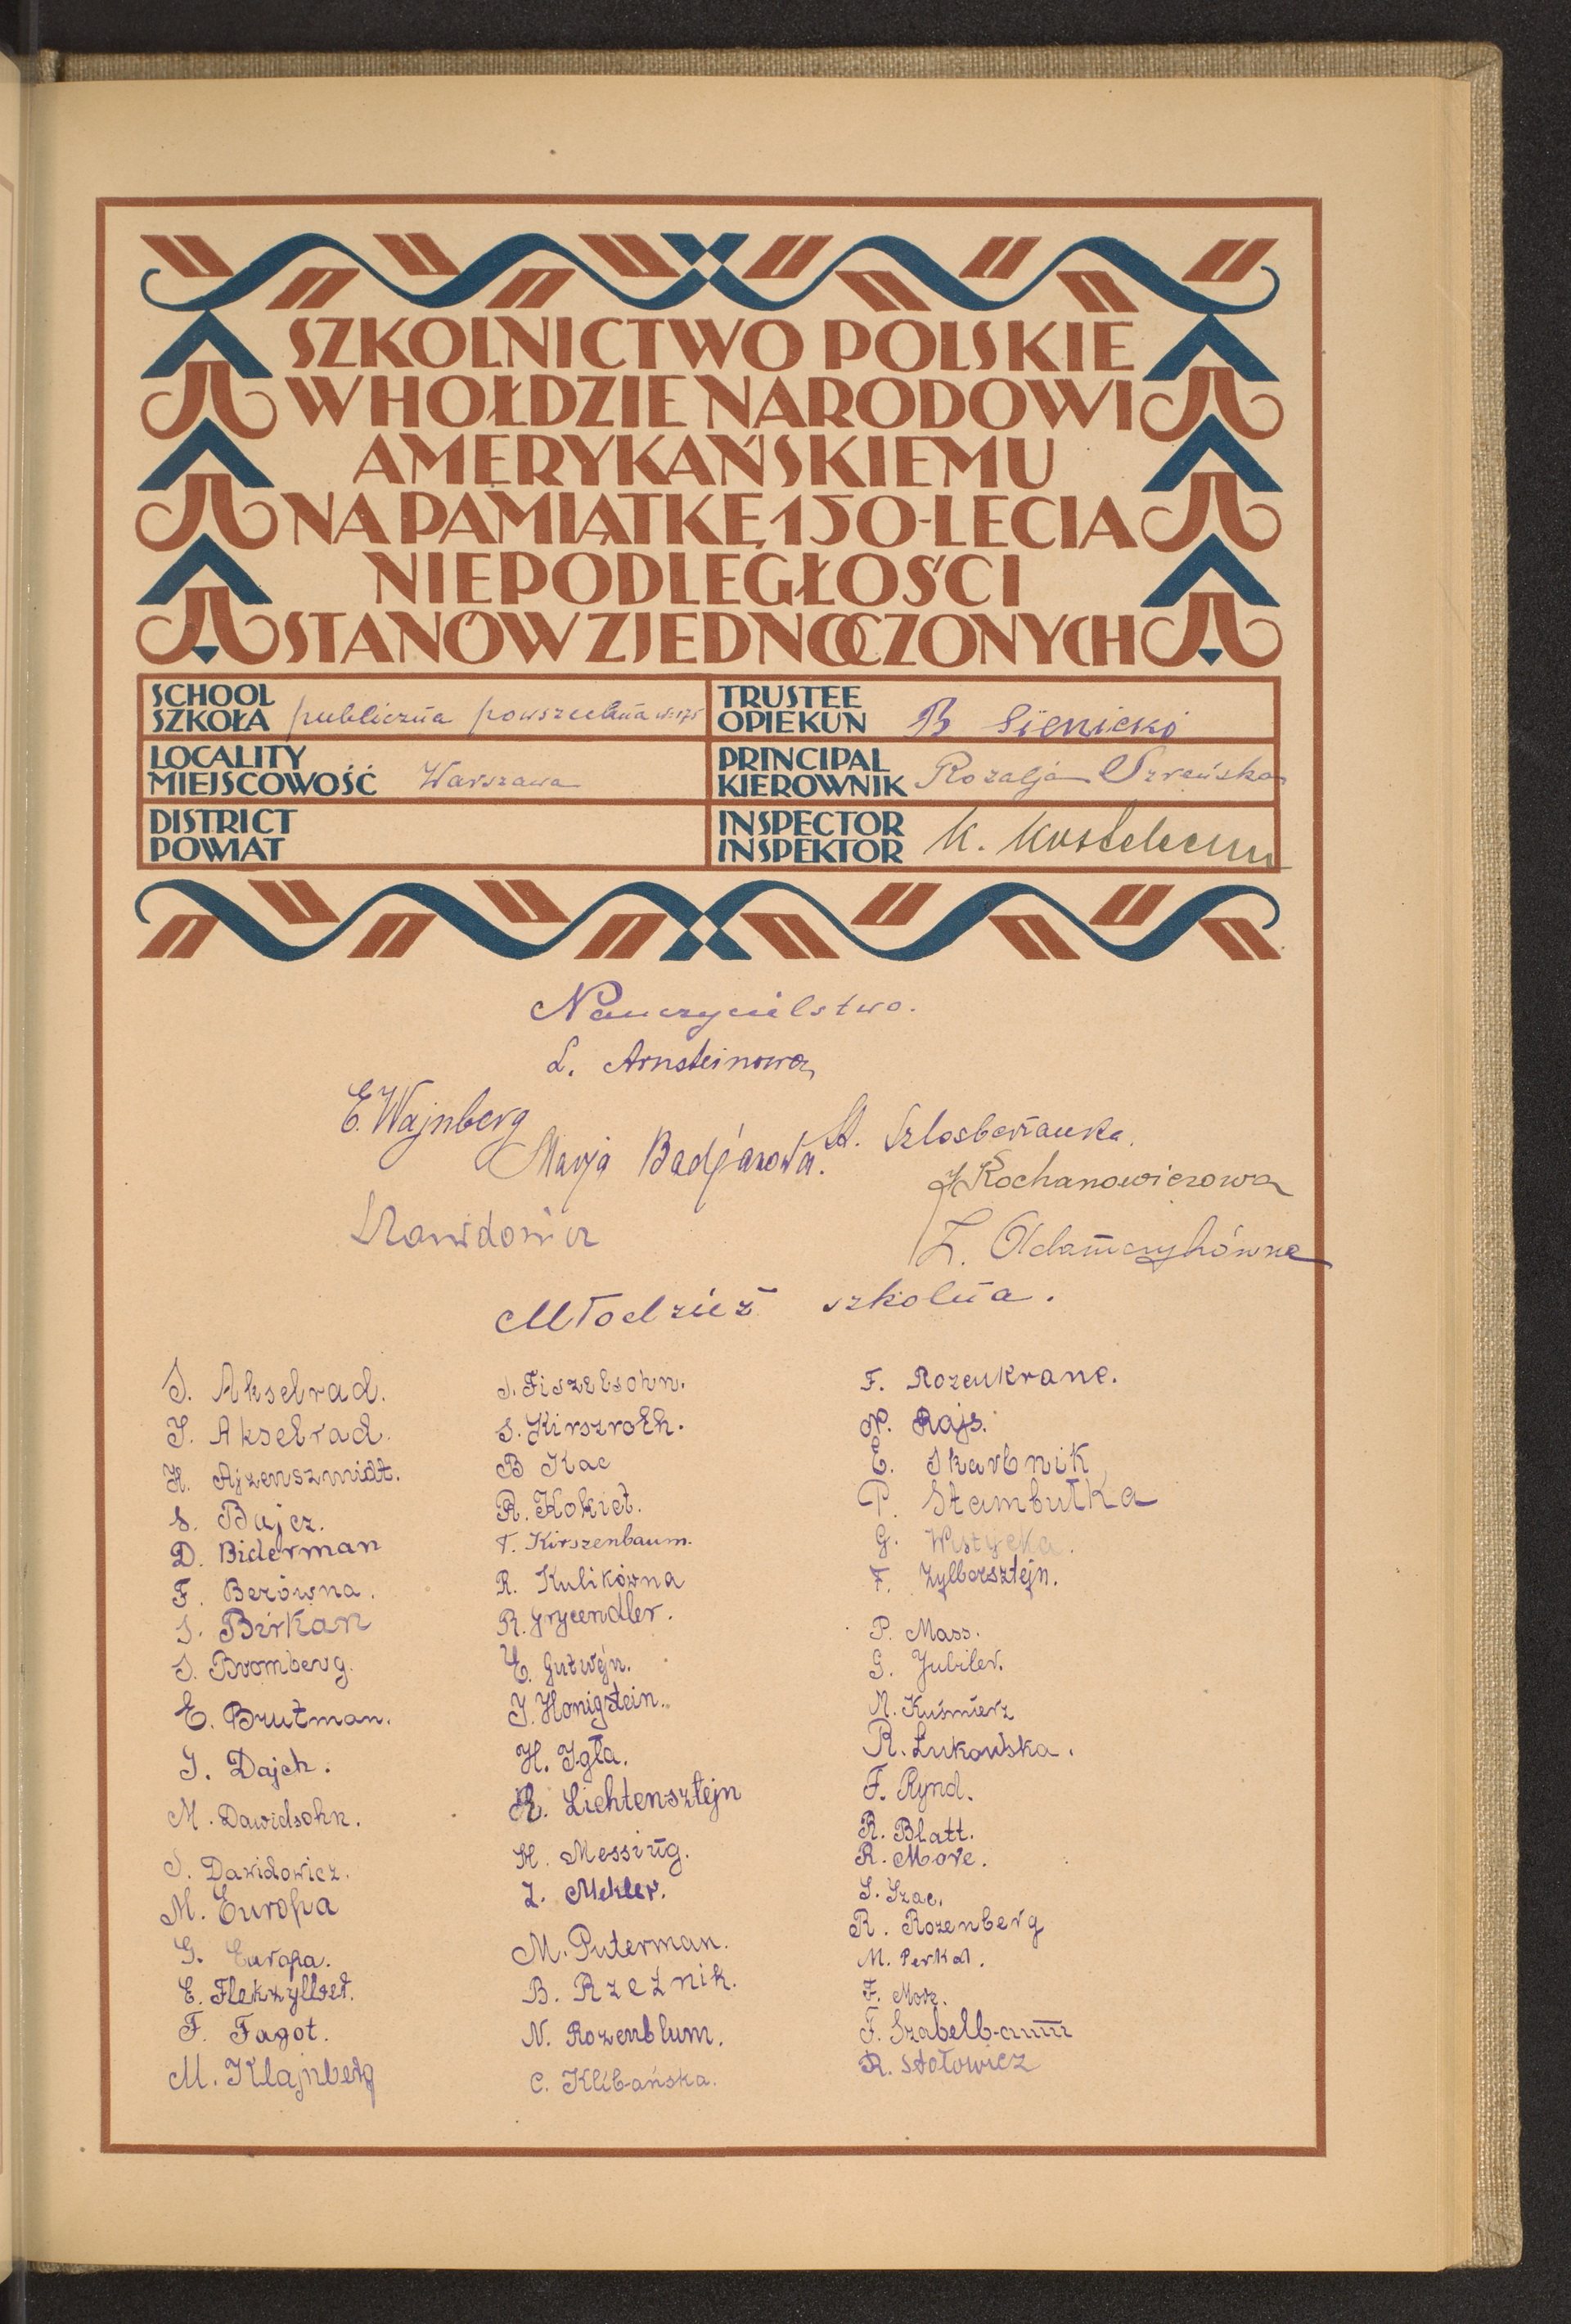 SZKOLNICTWO POLSKIE
W HOŁDZIE NARODOWI
AMERYKAŃSKIEMU
NA PAMIĄTKĘ 150-LECIA
NIEPODLEGŁOŚCI
STANÓW ZJEDNOCZONYCH
SCHOOL
SZKOŁA publiczna powszechna № 175
TRUSTEE
OPIEKUN B Sienicki
LOCALITY
MIEJSCOWOŚĆ Warszawa
PRINCIPAL
KIEROWNIK Rozalja Szreńska
DISTRICT
POWIAT
INSPECTOR
INSPEKTOR K.
Nauczycielstwo.
L. Arnsteinowa
E. Wajnberg
Marja Badjarowa.
A. Szlosberżanka.
J. Kochanowiczowa
Dawidowicz
Z. Adamczykówna
Młodzież szkolna.
S. Akselrad.
J. Akselrad.
H. Ajzenszmidt.
S. Bajcz.
D. Biderman
F. Berówna.
S. Birkan
S. Bromberg.
E. Brutman.
J. Dajch.
M. Dawidsohn.
S. Dawidowicz.
M. Europa
G. Europa.
E. Flekzylber.
F. Fagot.
M. Klajnberg
J. Fiszelsohn.
S. Kirszroth.
B Kac
R. Kokiet.
T. Kirszenbaum.
R. Kulikówna
R. Grycendler.
E. Gutwejn.
J. Honigstein.
H. Igła.
R. Lichtensztejn
H. Messing.
Z. Mekler.
M. Puterman.
B. Rzeźnik.
N. Rozenblum.
C. Klibańska.
F. Rozenkranc.
P. Rajs.
E. Skarbnik
P. Stambułka
G. Wistycka.
F. Zylbersztejn.
P. Mass.
G. Jubiler.
M. Kuśmierz
R. Łukowska.
F. Rynd.
R. Blatt.
R. More.
S. Szac.
R. Rozenberg
M. Perkal.
F. Morz.
F. Szabelbaum
R. Stołowicz